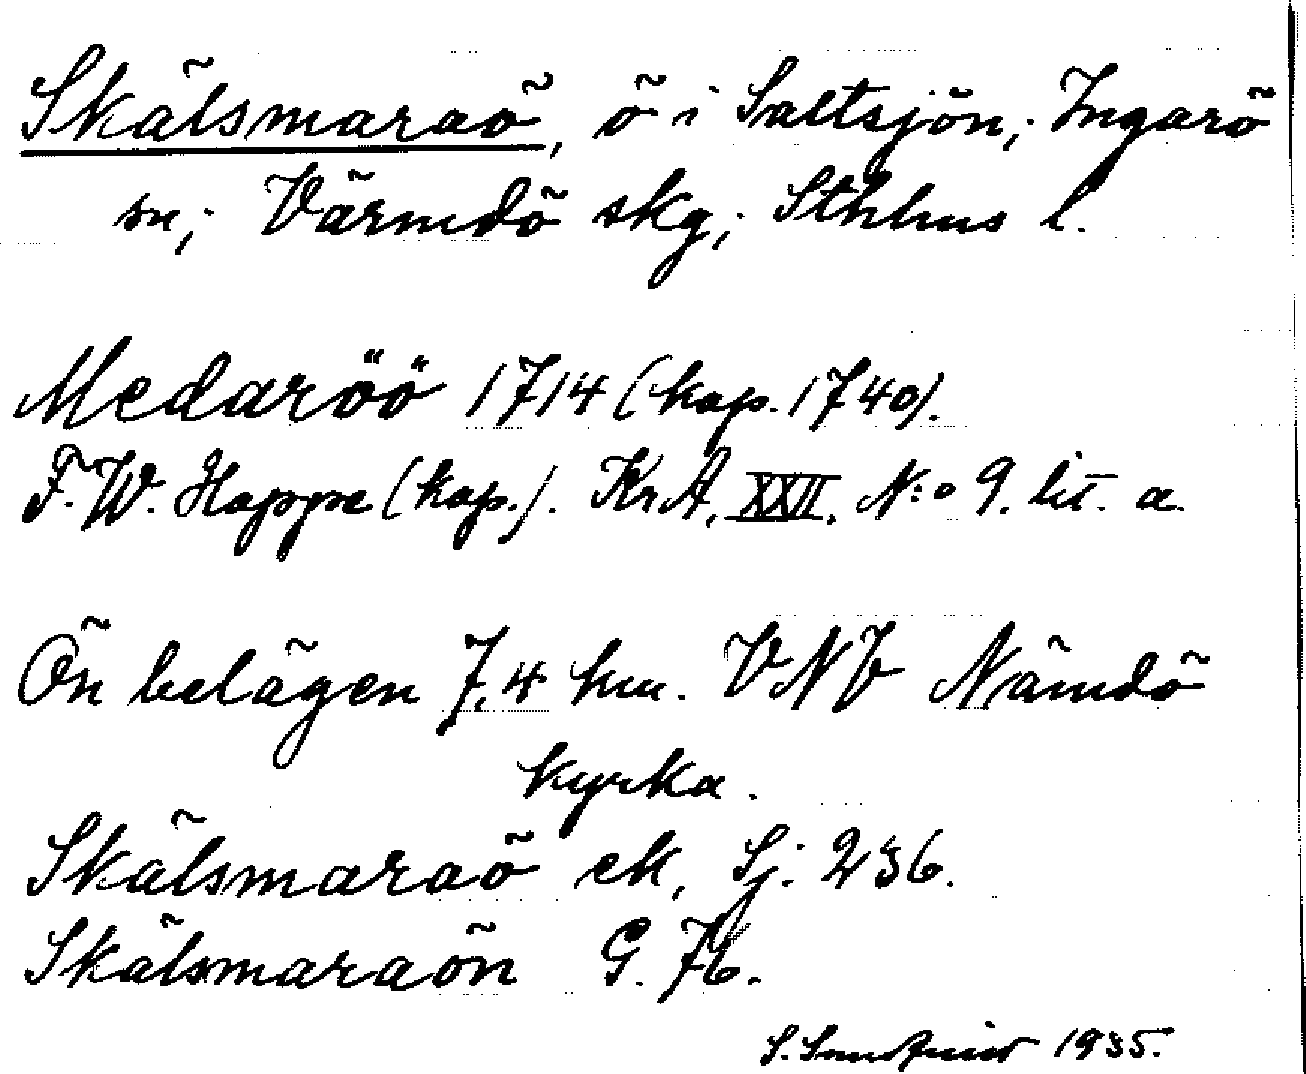 Skälsmaraö, ö i Saltsjön; Ingarö
sn; Värmdö skg; Sthlms l.
Medaröö 1714 (kop. 1740).
F. W. Hoppe (kop.). KrA, XXII, N:o 9. lit. a.
Ön belägen 7,4 km. VNV Nämdö
kyrka.
Skälsmaraö ek, Sj: 236.
Skälsmaraön G. 76.
S. 1935.